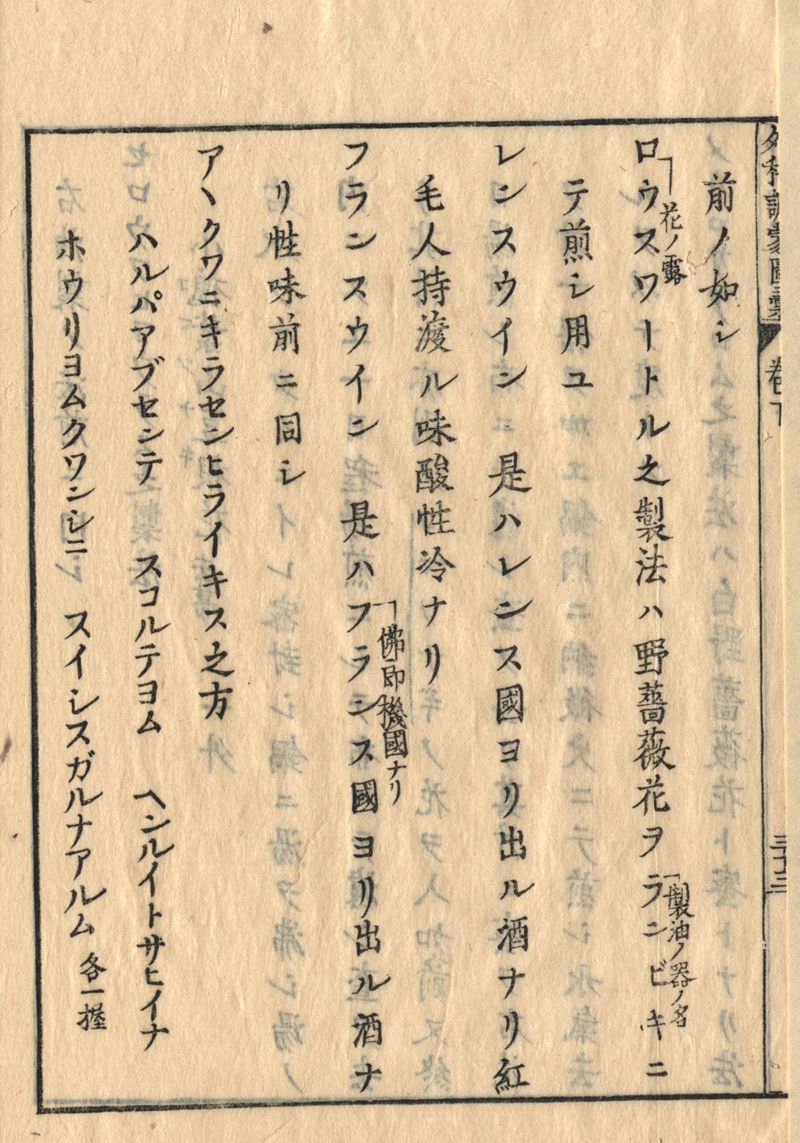 外科訓蒙圖彙 卷下
三十三
前ノ如シ
ロウスワートル之製法ハ野薔薇花ヲランビキニ
花ノ露
製油ノ器ノ名
テ煎シ用ユ
レンスウイン 是ハレンス國ヨリ出ル酒ナリ紅
毛人持渡ル味酸性冷ナリ
フランスウイン 是ハフランス國ヨリ出ル酒ナ
佛郎機國ナリ
リ性味前ニ同シ
アヽクワニキラセンヒライキス之方
ハルパアブセンテ スコルテヨム ヘンルイトサヒイナ
ホウリヨムクワンシニ スイシスガルナアルム 各一握